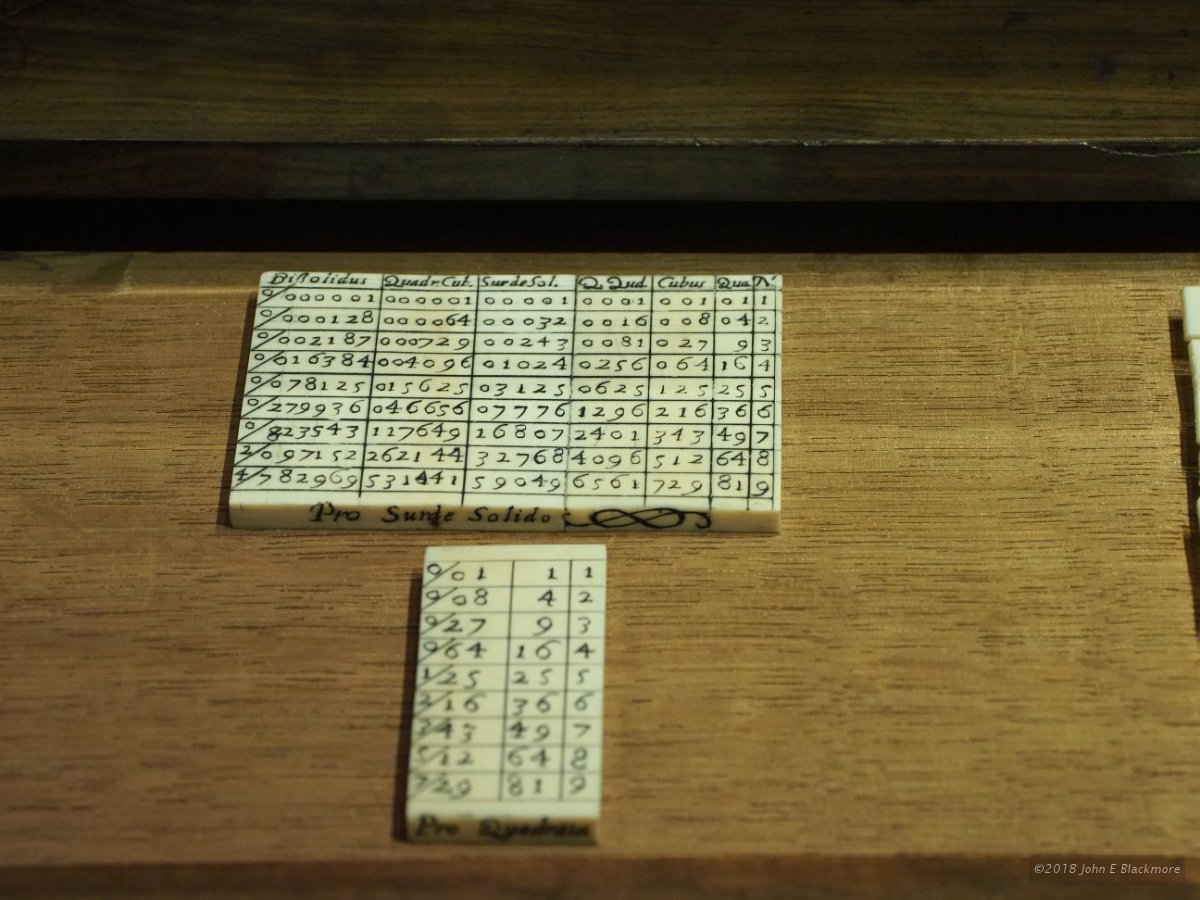 Bissolidus Quadr.Cub. SurdeSol. Q. Qud. Cubus Qua. N.
0/000001 000001 00001 0001 001 01 1
0/000128 000064 00032 0016 008 04 2
0/002187 000729 00243 0081 027 9 3
0/016384 004096 01024 0256 064 16 4
0/078125 015625 03125 0625 125 25 5
0/279936 046656 07776 1296 216 36 6
0/823543 117649 16807 2401 343 49 7
2/097152 262144 32768 4096 512 64 8
4/782969 531441 59049 6561 729 81 9
Pro Surde Solido
0/01 1 1
0/08 4 2
0/27 9 3
0/64 16 4
1/25 25 5
2/16 36 6
3/43 49 7
5/12 64 8
7/29 81 9
Pro Quadrata
©2018 John E Blackmore